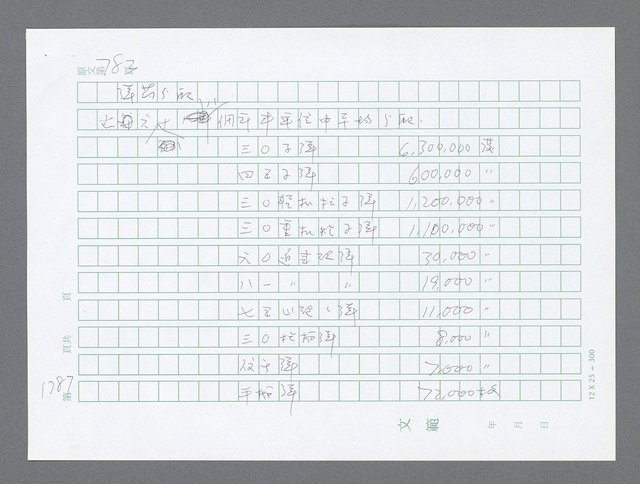 原文第782頁
彈藥分配
三〇子彈 6,300,000 發
四五子彈 600,000 〃
三〇輕機槍子彈 1,200,000 〃
三〇重機槍子彈 1,100,000 〃
六〇迫击砲彈 30,000 〃
八一 〃 〃 19,000 〃
七五山砲 〃 彈 11,000 〃
三〇枪榴彈 8,000 〃
信号彈 7,000 〃
手榴彈 72,000 枚
第1787頁共 頁
文範 年 月 日
12 X 25 = 300